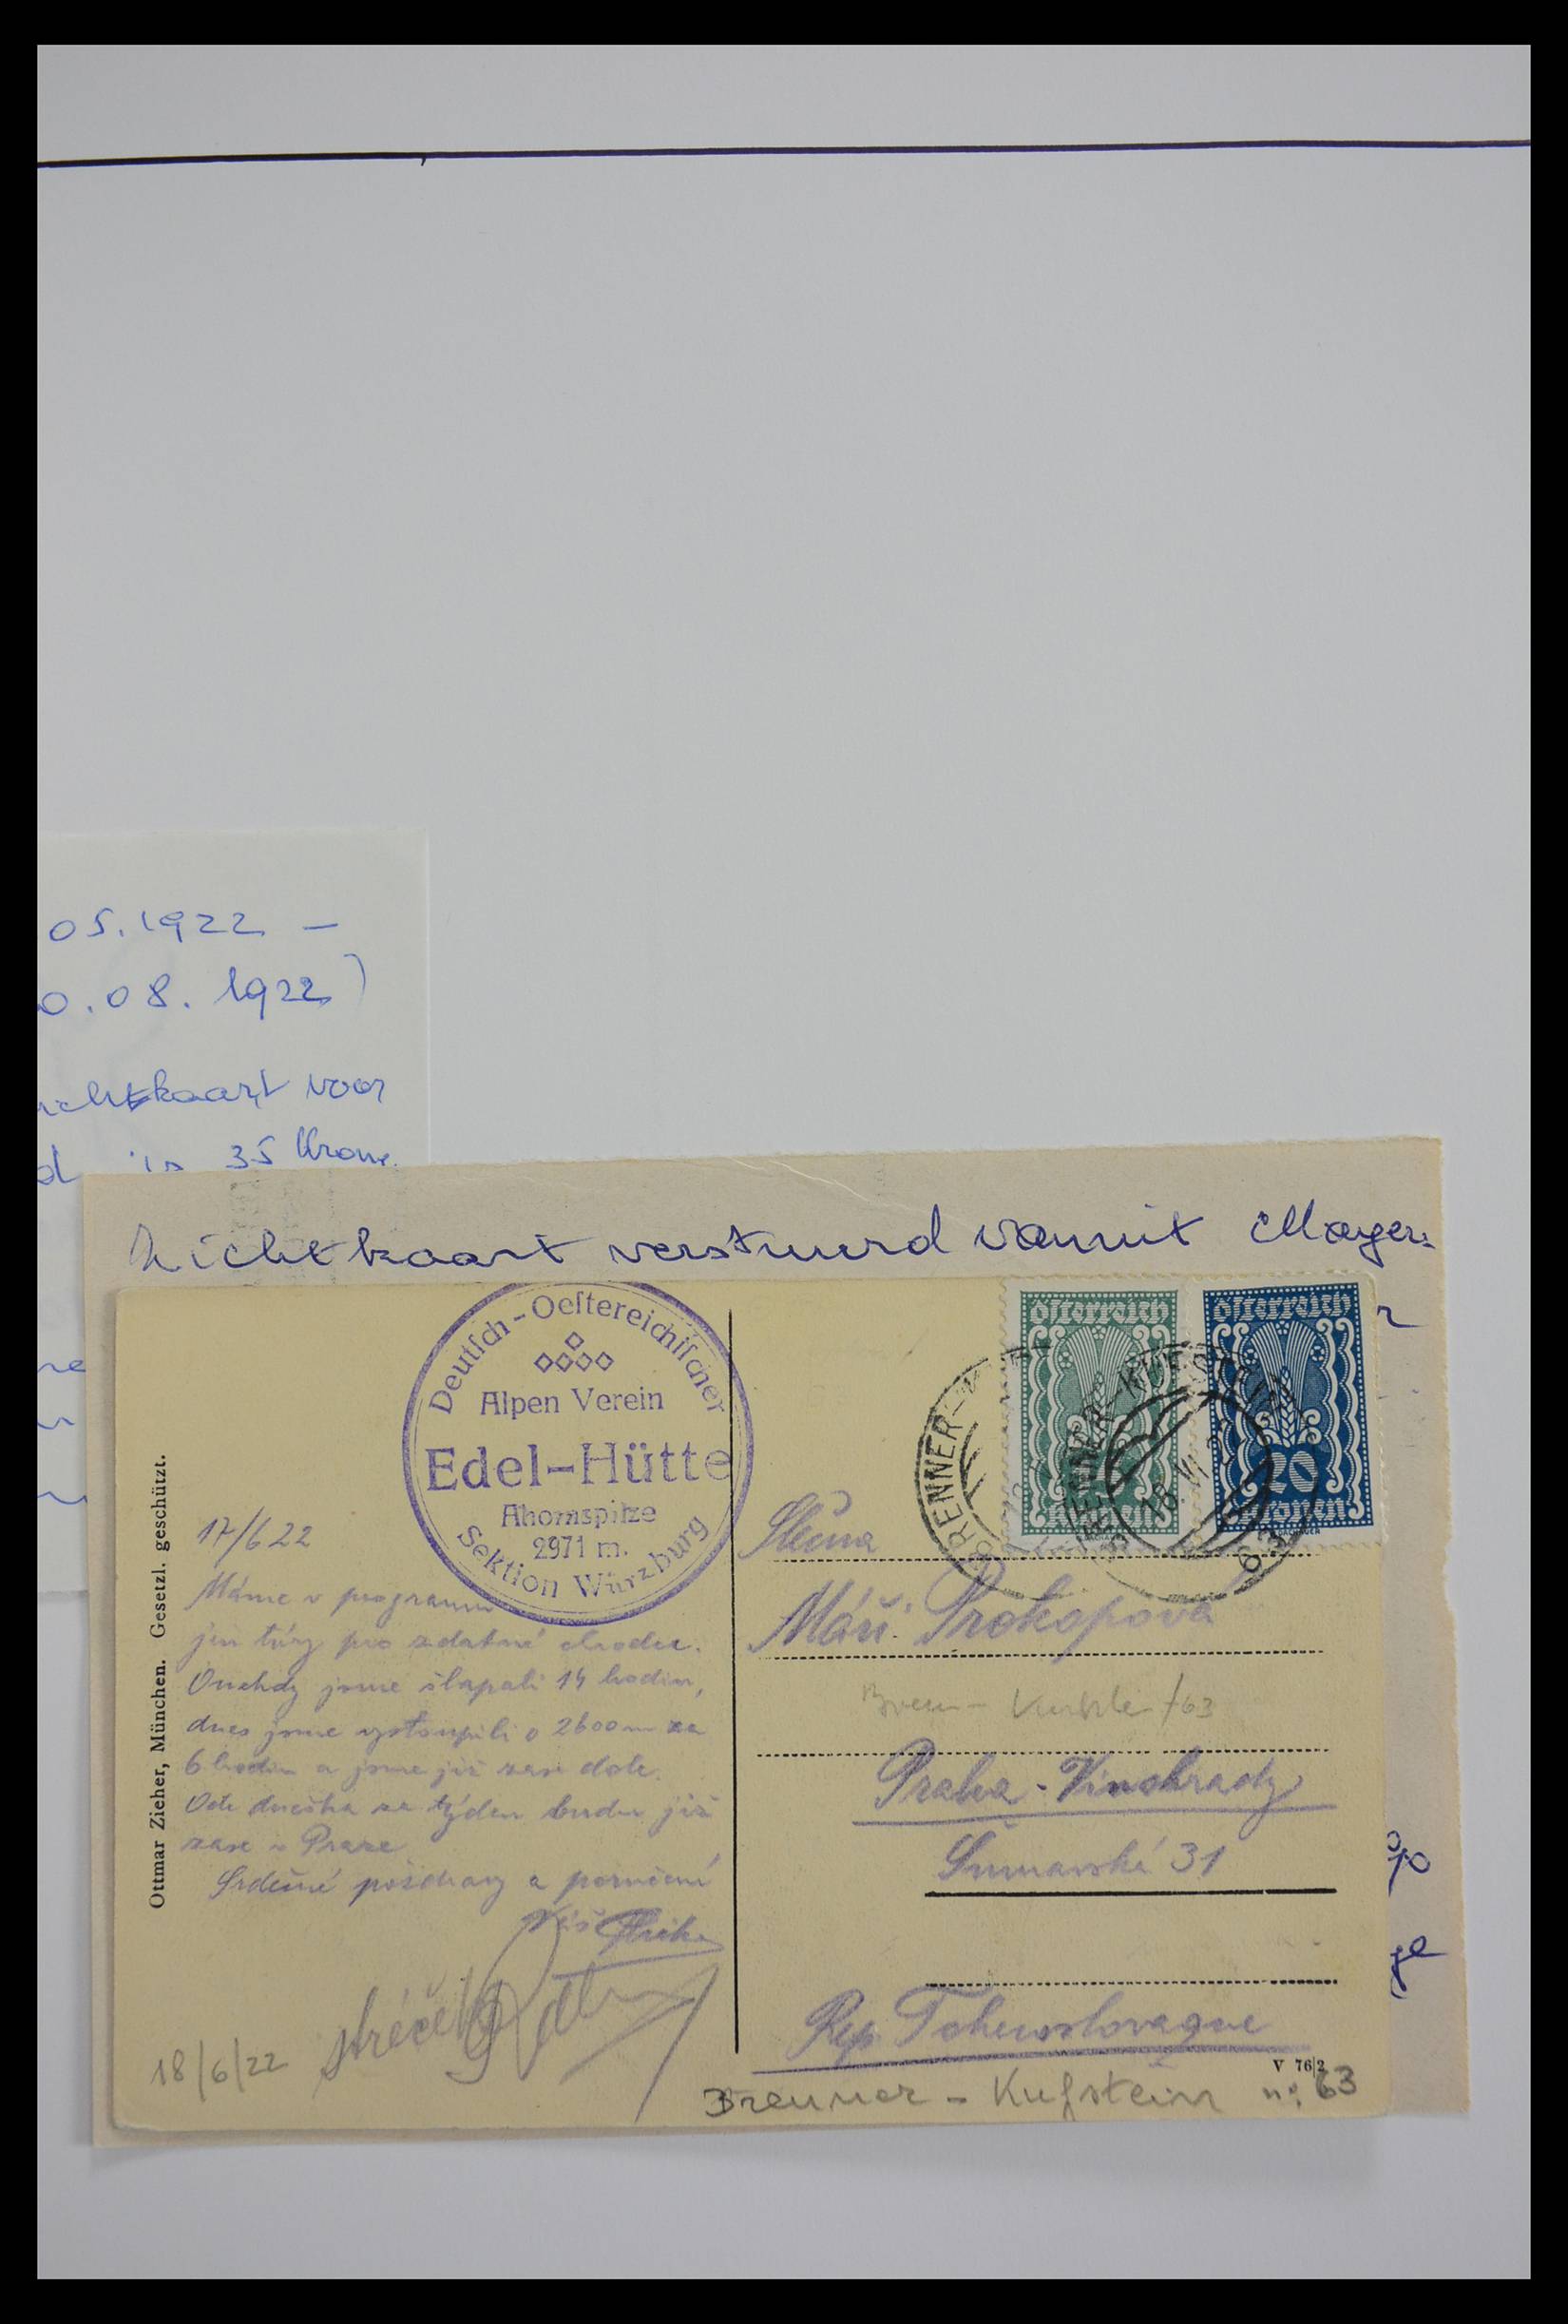 05.1922 –
0.08. 1922)
chtkaart voor
is 35 Krone.
Zichtkaart verstuurd vanuit Mayer
Deutſch-Oeſtereichiſcher
Alpen Verein
Edel-Hütte
Ahornspitze
2971 m.
Sektion Würzburg
österreich
kronen
österreich
20
kronen
BRENNER-
BRENNER-KUFSTEIN
18. VI. 22
63
Ottmar Zieher, München. Gesetzl. geschützt.
17/6 22
Máme v programu
jen túry pro zdatné chodce.
Onehdy jsme šlapali 14 hodin,
dnes jsme vystoupili o 2600 m za
6 hodin a jsme již zase dole.
Ode dneška za týden budu již
zase v Praze.
Srdečné pozdravy a poručení
Váš
strýček
18/6/22
Slečna
Máři Prokopová
/63
Praha-Vinohrady
Šumavská 31
Rep. Tchecoslovaque
V 76|2
Brenner – Kufstein n: 63
ge